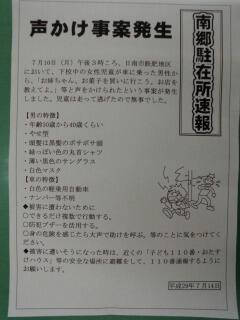 声かけ事案発生
南郷駐在所速報
7月10日（月）午後3時ころ、日南市飫肥地区
において、下校中の女性児童が車に乗った男性か
ら、「お姉ちゃん、お菓子を買いに行こう。お店を
教えてよ。」等と声をかけられたという事案が発生し
ました。児童は走って逃げたので無事でした。
【男の特徴】
・年齢30歳から40歳くらい
・やせ型
・頭髪は黒髪のボサボサ頭
・緑っぽい色の丸首シャツ
・薄い黒色のサングラス
・白色マスク
【車の特徴】
・白色の軽乗用自動車
・ナンバー等不明
◆被害に遭わないために
○できるだけ複数で行動する。
○防犯ブザーを活用する。
○身の危険を感じたら大声で助けを呼ぶ、等のことに気をつけてく
ださい。
◆被害に遭いそうになった時は、近くの「子ども110番・おたす
けハウス」等の安全な場所に避難をして、110番通報するように
お願いします。
平成29年7月14日